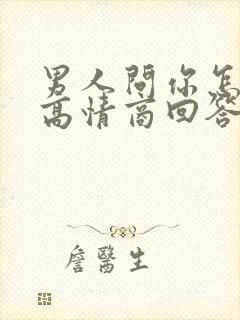 男人問你怎
高情商回答
詹醫生